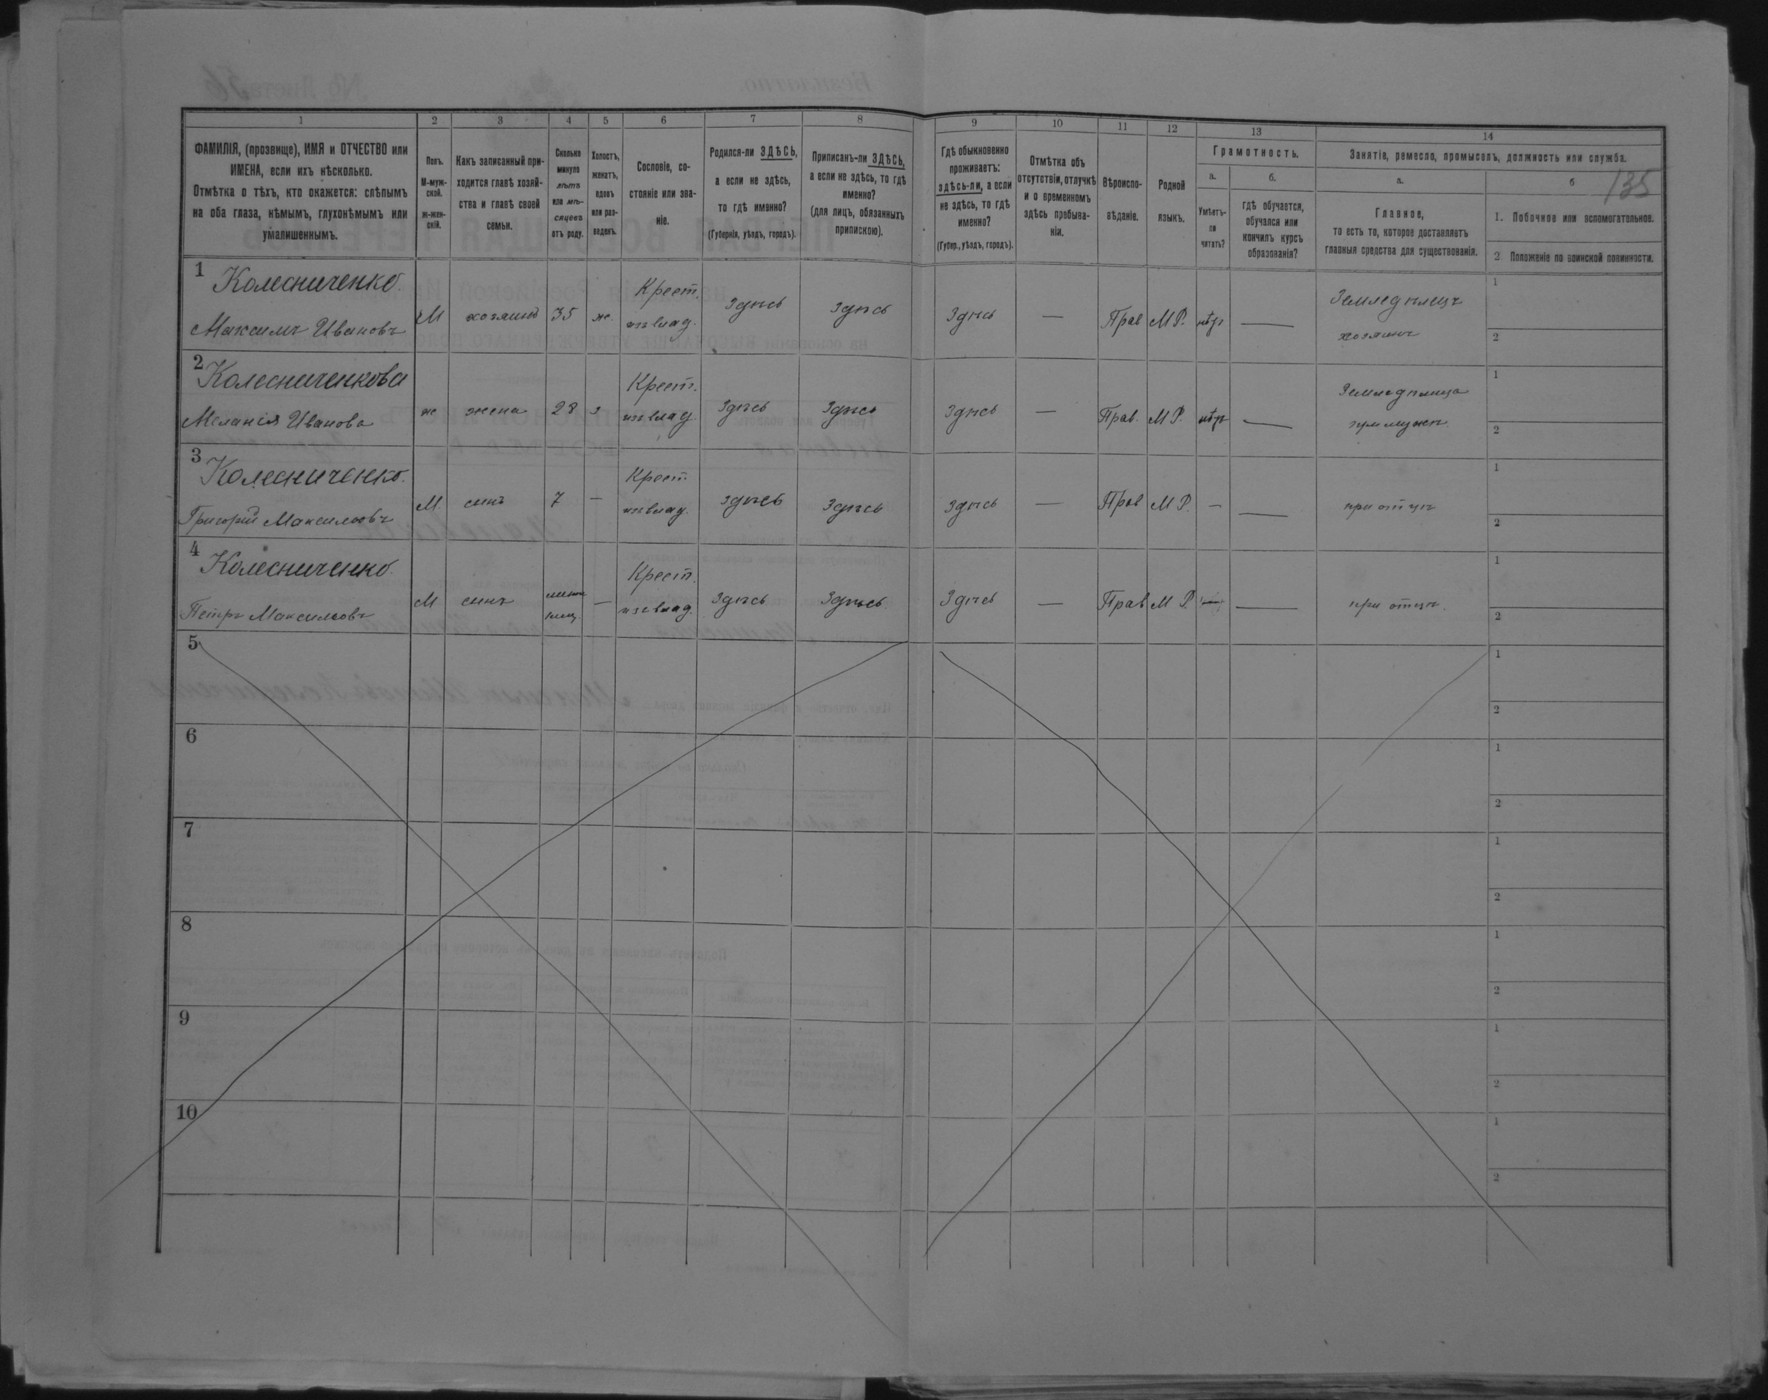 135
1 2 3 4 5 6 7 8 9 10 11 12 13 14
ФАМИЛІЯ, (прозвище), ИМЯ и ОТЧЕСТВО или ИМЕНА, если ихъ нѣсколько.
Отмѣтка о тѣхъ, кто окажется: слѣпымъ на оба глаза, нѣмымъ, глухонѣмымъ или умалишеннымъ.
Полъ.
М-мужской.
ж-женскій.
Какъ записанный приходится главѣ хозяйства и главѣ своей семьи.
Сколько минуло лѣтъ или мѣсяцевъ отъ роду.
Холостъ, женатъ, вдовъ или разведенъ.
Сословіе, состояніе или званіе.
Родился-ли ЗДѢСЬ, а если не здѣсь, то гдѣ именно?
(Губернія, уѣздъ, городъ).
Приписанъ-ли ЗДѢСЬ, а если не здѣсь, то гдѣ именно?
(для лицъ, обязанныхъ припискою).
Гдѣ обыкновенно проживаетъ: здѣсь-ли, а если не здѣсь, то гдѣ именно?
(Губер., уѣздъ, городъ).
Отмѣтка объ отсутствіи, отлучкѣ и о временномъ здѣсь пребываніи.
Вѣроисповѣданіе.
Родной языкъ.
Грамотность.
а.
Умѣетъ-ли читать?
б.
гдѣ обучается, обучался или кончилъ курсъ образованія?
Занятіе, ремесло, промыселъ, должность или служба.
а.
Главное,
то есть то, которое доставляетъ главныя средства для существованія.
б
1. Побочное или вспомогательное.
2 Положеніе по воинской повинности.
1 Колесниченко
Максимъ Ивановъ М хозяинъ 35 ж. Крест. изъ влад. здѣсь здѣсь здѣсь — Прав М Р. нѣт — Земледѣлецъ хозяинъ 1 2
2 Колесниченкова
Меланія Иванова ж жена 28 з Крест. изъ влад здѣсь здѣсь здѣсь — Прав. М Р. нѣт — Земледѣлица при мужѣ 1 2
3 Колесниченко
Григорій Максимовъ М сынъ 7 — Крест. изъ влад. здѣсь здѣсь здѣсь — Прав М Р. — — при отцѣ 1 2
4 Колесниченко
Петръ Максимовъ М сынъ — Крест. изъ влад. здѣсь здѣсь здѣсь — Прав М Р. — — при отцѣ 1 2
5 1 2
6 1 2
7 1 2
8 1 2
9 1 2
10 1 2